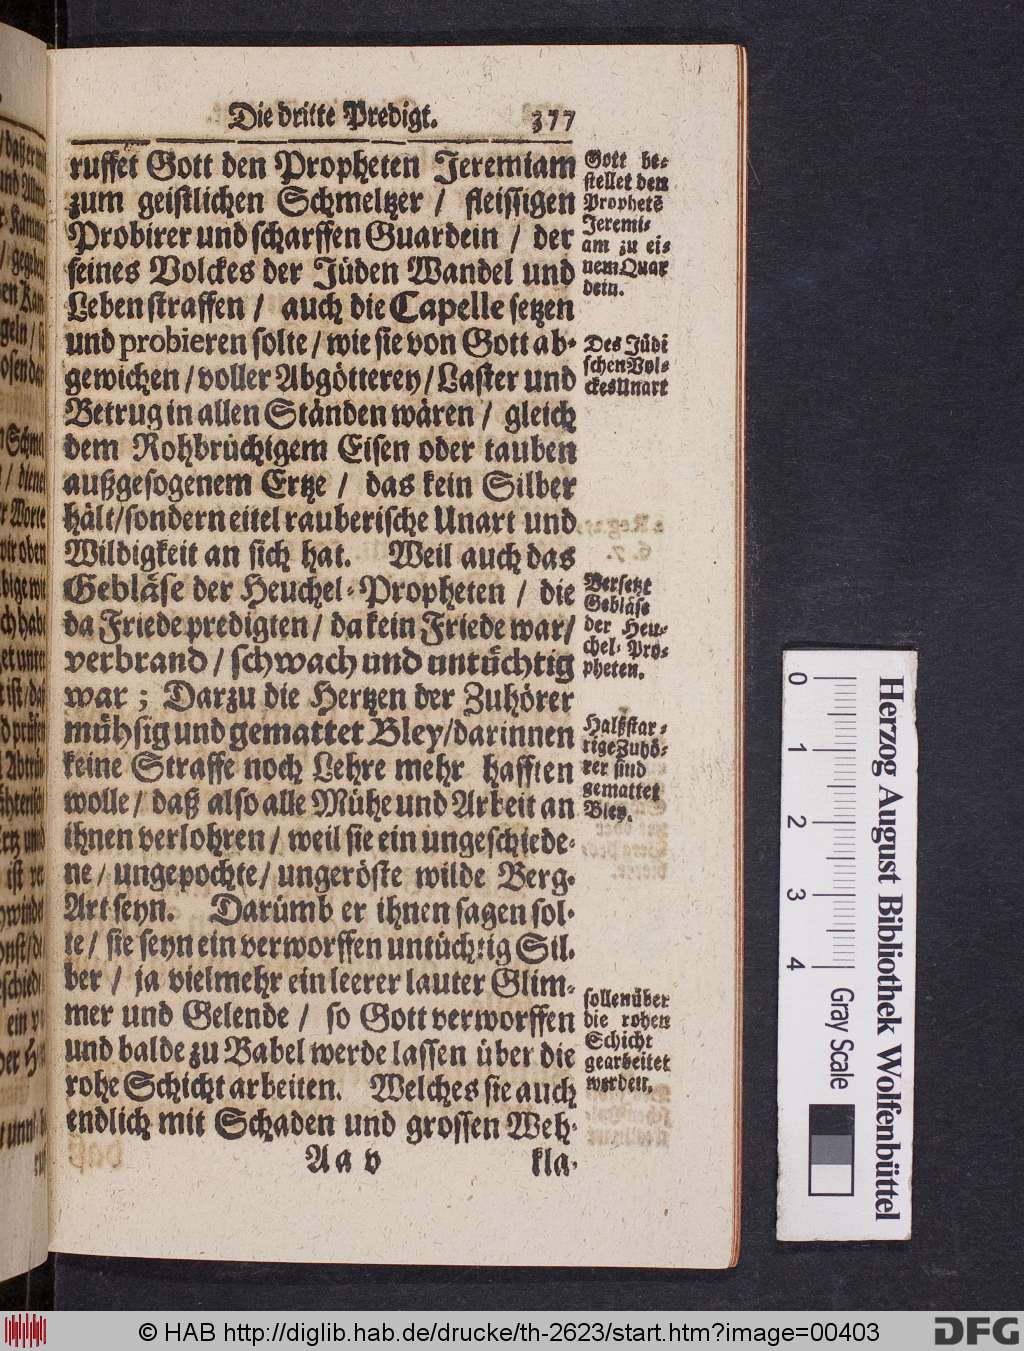 Die dritte Predigt. 377
ruffet Gott den Propheten Jeremiam
zum geistlichen Schmeltzer / fleissigen
Probirer und scharffen Guardein / der
seines Volckes der Jüden Wandel und
Leben straffen / auch die Capelle setzen
und probieren solte / wie sie von Gott ab-
gewichen / voller Abgötterey / Laster und
Betrug in allen Ständen wären / gleich
dem Rohbrüchigem Eisen oder tauben
außgesogenem Ertze / das kein Silber
hält / sondern eitel rauberische Unart und
Wildigkeit an sich hat. Weil auch das
Gebläse der Heuchel-Propheten / die
da Friede predigten / da kein Friede war /
verbrand / schwach und untüchtig
war ; Darzu die Hertzen der Zuhörer
mühsig und gemattet Bley / darinnen
keine Straffe noch Lehre mehr hafften
wolle / daß also alle Mühe und Arbeit an
ihnen verlohren / weil sie ein ungeschiede-
ne / ungepochte / ungeröste wilde Berg-
Art seyn. Darümb er ihnen sagen sol-
te / sie seyn ein verworffen untüchtig Sil-
ber / ja vielmehr ein leerer lauter Glim-
mer und Gelende / so Gott verworffen
und balde zu Babel werde lassen über die
rohe Schicht arbeiten. Welches sie auch
endlich mit Schaden und grossen Weh-
A a v kla-
Gott be-
stellet den
Prophetē
Jeremi-
am zu ei-
nem Quar
dein.
Des Jüdi
schen Vol-
ckes Unart
Versetzt
Gebläse
der Heu-
chel-Pro-
pheten.
Halßstar-
rige Zuhö-
rer sind
gemattet
Bley.
sollen über
die rohen
Schicht
gearbeitet
werden.
0 1 2 3 4
Gray Scale
Herzog August Bibliothek Wolfenbüttel
© HAB http://diglib.hab.de/drucke/th-2623/start.htm?image=00403
DFG